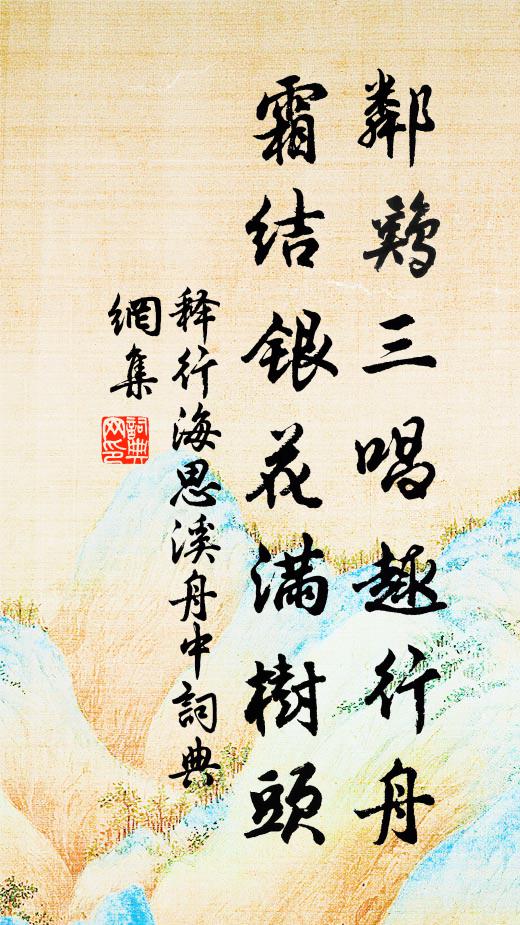 鄰鶏三唱趣行舟
霜結銀花滿樹頭
释行海思溪舟中詞典
網集
詞典
网印